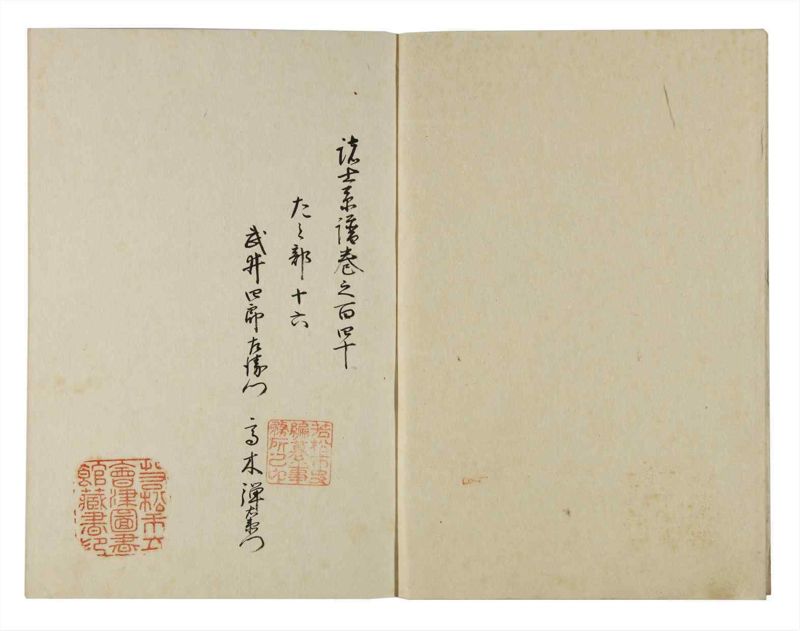 諸士系譜巻之百四十
たノ部 十六
武井四郎左衛門 高木弾右衛門
若松市立
會津圖書
館藏書印
若松市史
編纂事
務所之印